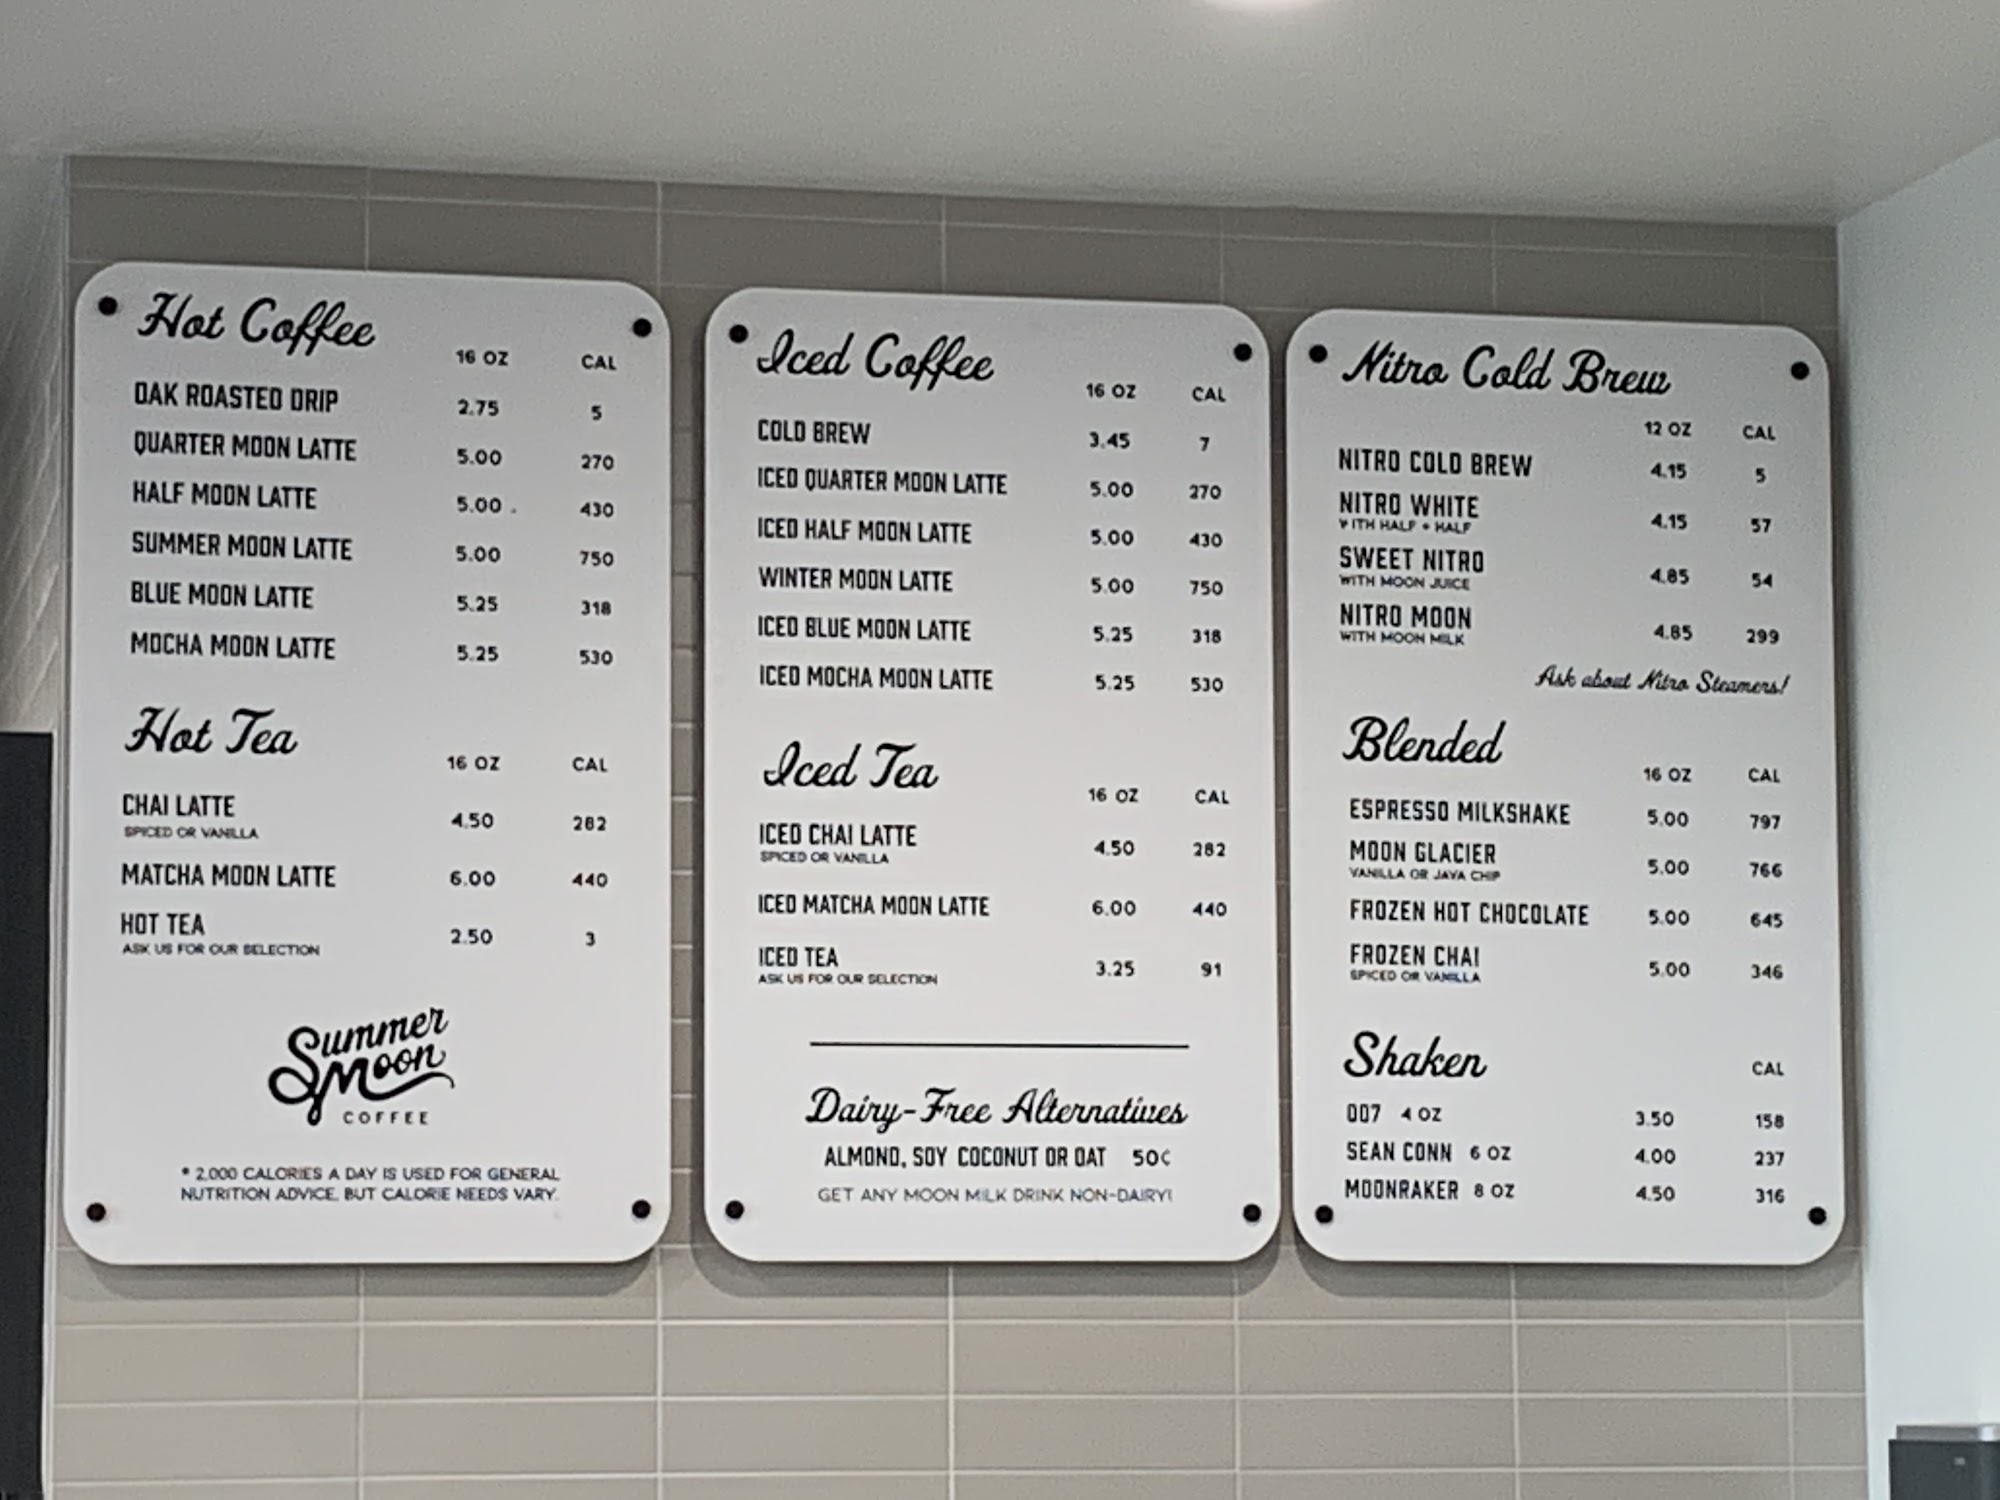 Hot Coffee
16 OZ CAL
OAK ROASTED DRIP 2.75 5
QUARTER MOON LATTE 5.00 270
HALF MOON LATTE 5.00 430
SUMMER MOON LATTE 5.00 750
BLUE MOON LATTE 5.25 318
MOCHA MOON LATTE 5.25 530
Hot Tea
16 OZ CAL
CHAI LATTE 4.50 282
SPICED OR VANILLA
MATCHA MOON LATTE 6.00 440
HOT TEA 2.50 3
ASK US FOR OUR SELECTION
Summer
Moon
COFFEE
* 2,000 CALORIES A DAY IS USED FOR GENERAL
NUTRITION ADVICE, BUT CALORIE NEEDS VARY.
Iced Coffee
16 OZ CAL
COLD BREW 3.45 7
ICED QUARTER MOON LATTE 5.00 270
ICED HALF MOON LATTE 5.00 430
WINTER MOON LATTE 5.00 750
ICED BLUE MOON LATTE 5.25 318
ICED MOCHA MOON LATTE 5.25 530
Iced Tea
16 OZ CAL
ICED CHAI LATTE 4.50 282
SPICED OR VANILLA
ICED MATCHA MOON LATTE 6.00 440
ICED TEA 3.25 91
ASK US FOR OUR SELECTION
Dairy-Free Alternatives
ALMOND, SOY COCONUT OR OAT 50¢
GET ANY MOON MILK DRINK NON-DAIRY!
Nitro Cold Brew
12 OZ CAL
NITRO COLD BREW 4.15 5
NITRO WHITE 4.15 57
WITH HALF + HALF
SWEET NITRO 4.85 54
WITH MOON JUICE
NITRO MOON 4.85 299
WITH MOON MILK
Ask about Nitro Steamers!
Blended
16 OZ CAL
ESPRESSO MILKSHAKE 5.00 797
MOON GLACIER 5.00 766
VANILLA OR JAVA CHIP
FROZEN HOT CHOCOLATE 5.00 645
FROZEN CHAI 5.00 346
SPICED OR VANILLA
Shaken
CAL
007 4 OZ 3.50 158
SEAN CONN 6 OZ 4.00 237
MOONRAKER 8 OZ 4.50 316